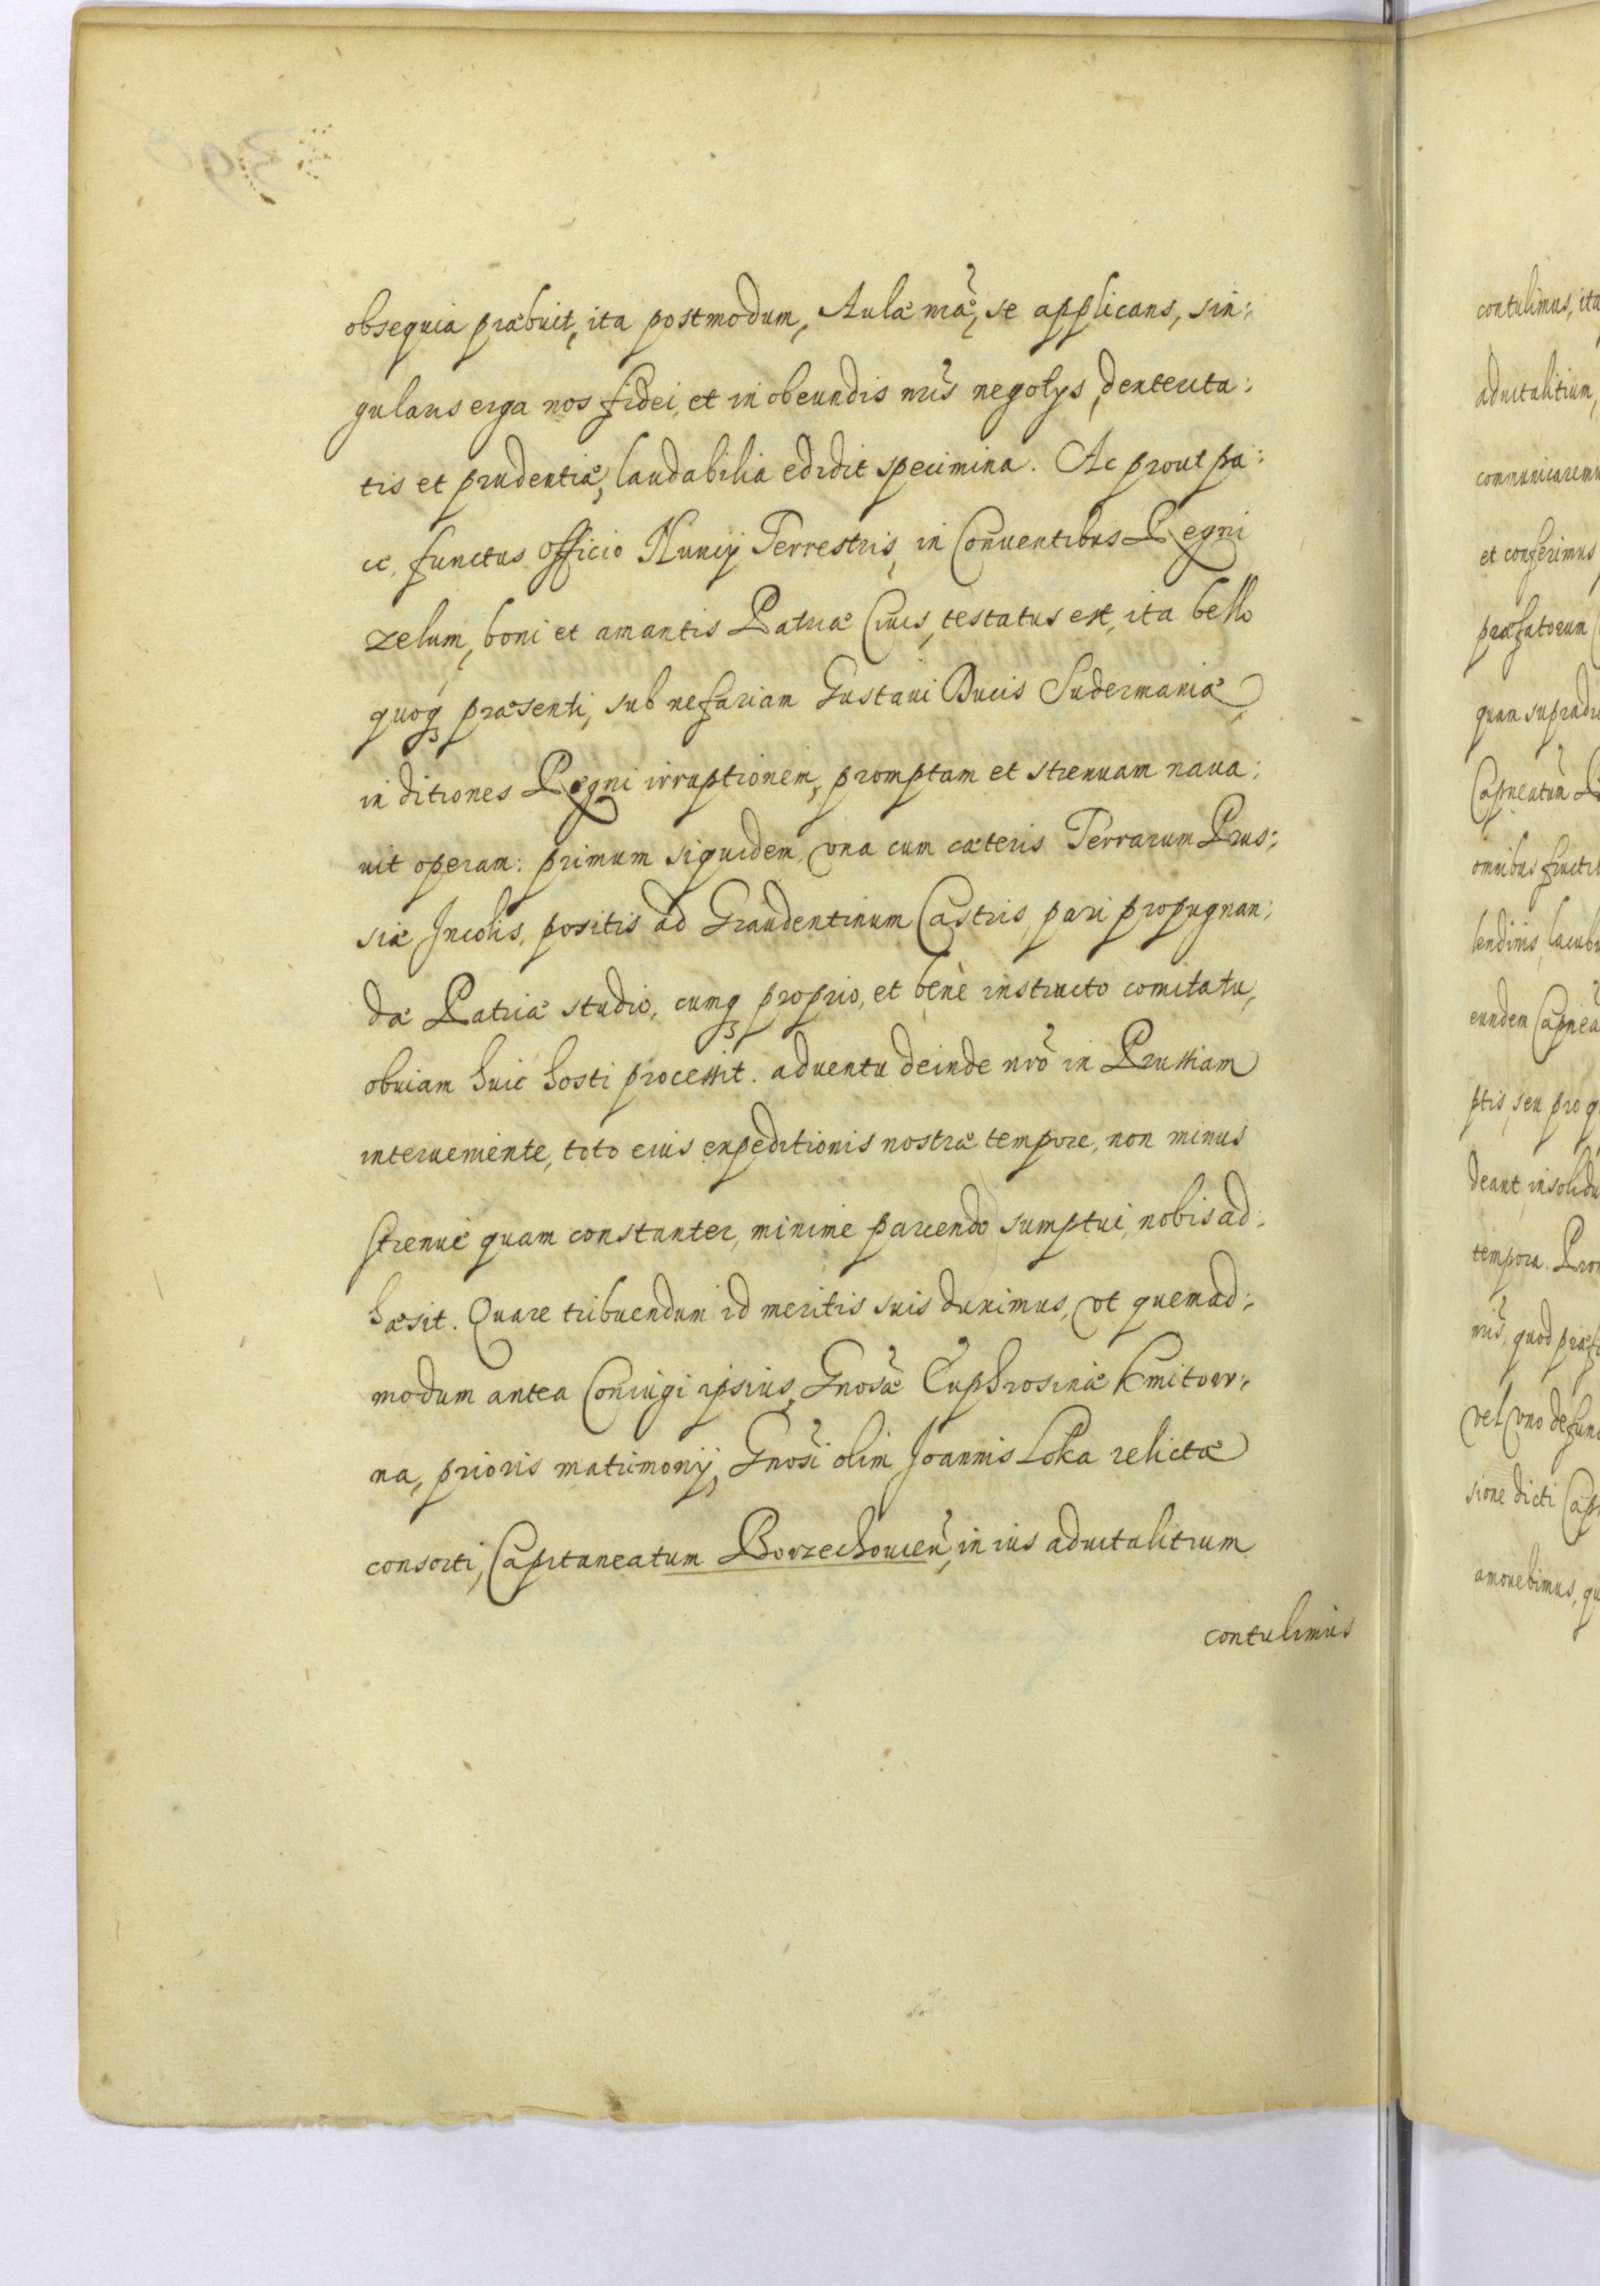 obsequia præbuit, ita postmodum, Aulæ nr̃æ, se applicans, sin:
gularis erga nos fidei, et in obeundis nr̃is negotys, dexterita:
tis et prudentiæ, laudabilia edidit specimina. Ac prout pa:
ce, functus officio Nuncij Terrestris, in Conuentibus Regni
zelum, boni et amantis Patriæ Ciuis, testatus est, ita bello
quoqȝ præsenti, sub nefariam Gustaui Ducis Sudermaniæ
in ditiones Regni irruptionem, promptam et strenuam naua:
uit operam: primum siquidem vna cum cæteris Terrarum Prus:
siæ Incolis, positis ad Graudentinum Castris, pari propugnan:
dæ Patriæ studio, cumqȝ proprio, et benè instructo comitatu,
obuiam huic hosti processit. aduentu deinde nr̃o in Prussiam
interueniente, toto eius expeditionis nostræ tempore, non minus
strenuè quam constanter, minime parcendo sumptui, nobis ad:
hæsit. Quare tribuendum id meritis suis duximus, vt quemad:
modum antea Coniugi ipsius, Gnosæ Euphrosinæ Kmitow:
na, prioris matrimonij, Gnosi olim Joannis Loka relictæ
consorti, Capitaneatum Borzechouicen̄, in ius aduitalitium
contulimus
contulimus, ita
aduitalitium,
communicaremu
et conferimus
præfatorum
quam supradi
Capneatum
omnibus fructi
lendinis, lacub
eundem Capnea
ptis, seu pro q
deant, insolidu
tempora. Pro
nr̃is, quod præf
vel vno defun
sione dicti Cap
amouebimus, qu